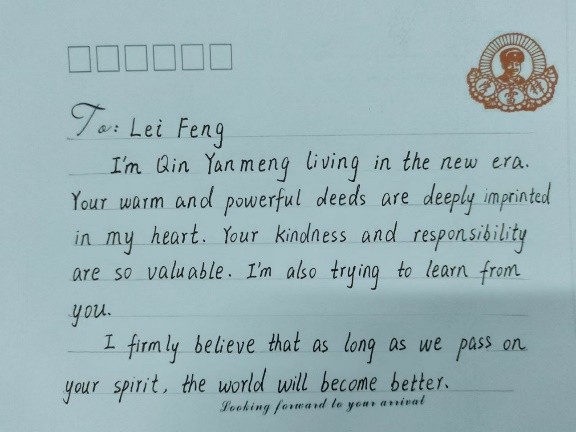 To: Lei Feng
I'm Qin Yanmeng living in the new era.
Your warm and powerful deeds are deeply imprinted
in my heart. Your kindness and responsibility
are so valuable. I'm also trying to learn from
you.
I firmly believe that as long as we pass on
your spirit, the world will become better.
Looking forward to your arrival